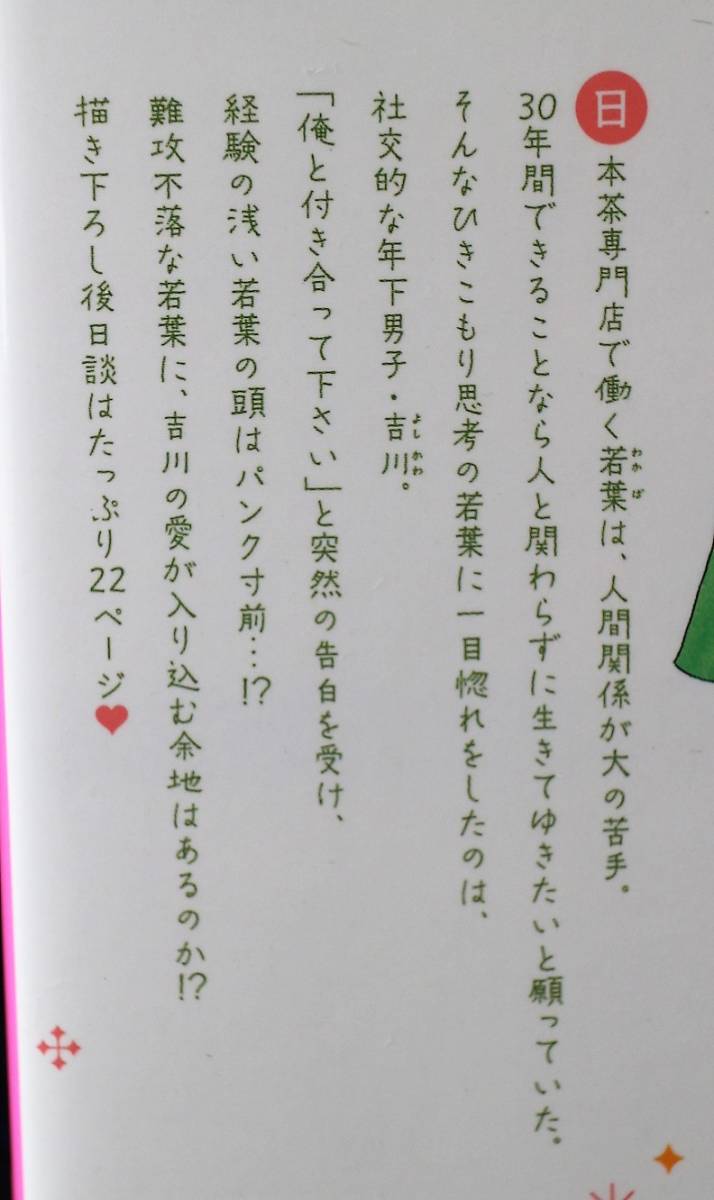 日本茶専門店で働く若葉は、人間関係が大の苦手。
30年間できることなら人と関わらずに生きてゆきたいと願っていた。
そんなひきこもり思考の若葉に一目惚れをしたのは、
社交的な年下男子・吉川。
「俺と付き合って下さい」と突然の告白を受け、
経験の浅い若葉の頭はパンク寸前…!?
難攻不落な若葉に、吉川の愛が入り込む余地はあるのか!?
描き下ろし後日談はたっぷり22ページ♥